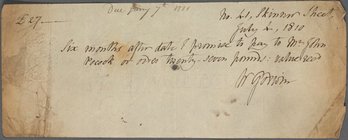 Due Jany 7th 1811
£27—
No. 41. Skinner Street,
July 4, 1810
Six months after date I promise to pay to Mr John
or order twenty-seven pounds: value recd
W Godwin